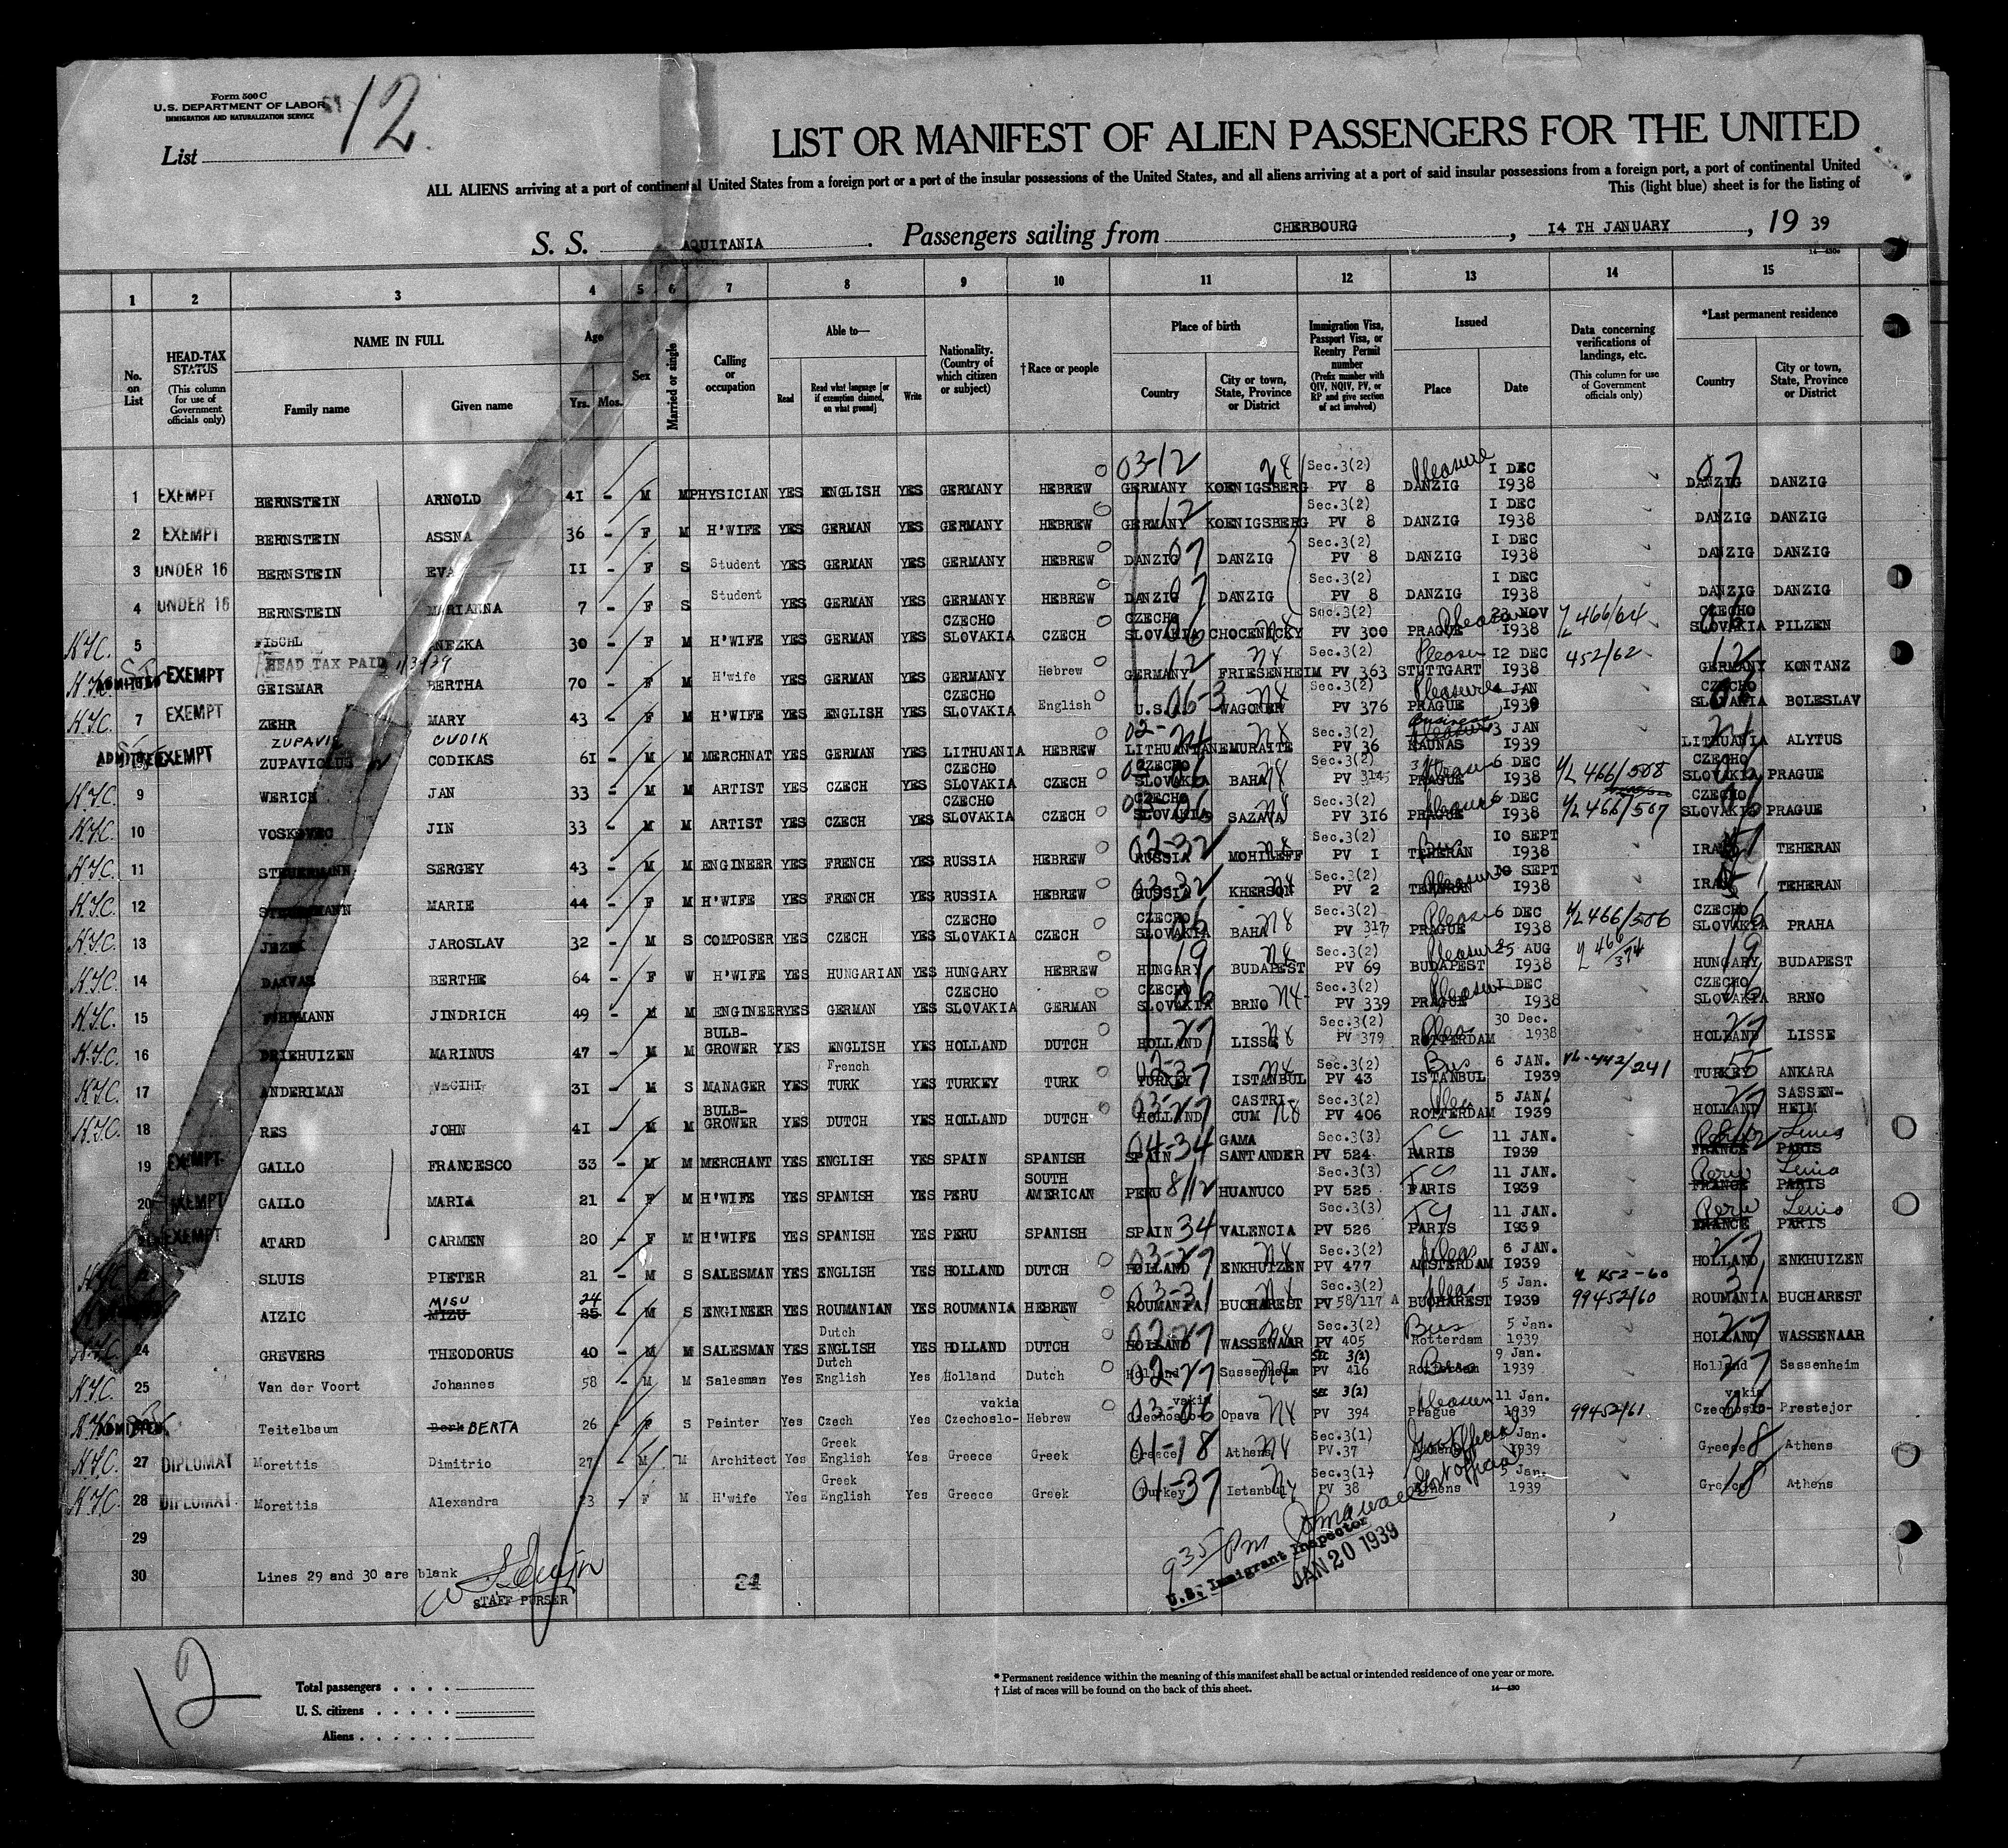 Form 500 C
U.S. DEPARTMENT OF LABOR
IMMIGRATION AND NATURALIZATION SERVICE
List 12.
LIST OR MANIFEST OF ALIEN PASSENGERS FOR THE UNITED
ALL ALIENS arriving at a port of continental United States from a foreign port or a port of the insular possessions of the United States, and all aliens arriving at a port of said insular possessions from a foreign port, a port of continental United
This (light blue) sheet is for the listing of
S. S. AQUITANIA. Passengers sailing from CHERBOURG, 14 TH JANUARY, 19 39
14—430
1 2 3 4 5 6 7 8 9 10 11 12 13 14 15
No. on List
HEAD-TAX STATUS (This column for use of Government officials only)
NAME IN FULL Family name Given name
Age Yrs. Mos.
Sex
Married or single
Calling or occupation
Able to— Read Read what language [or if exemption claimed, on what ground] Write
Nationality. (Country of which citizen or subject)
† Race or people
Place of birth Country City or town, State, Province or District
Immigration Visa, Passport Visa, or Reentry Permit number (Prefix number with QIV, NQIV, PV, or RP and give section of act involved)
Issued Place Date
Data concerning verifications of landings, etc. (This column for use of Government officials only)
*Last permanent residence Country City or town, State, Province or District
1 EXEMPT BERNSTEIN ARNOLD 41 - M M PHYSICIAN YES ENGLISH YES GERMANY HEBREW 03-12 GERMANY KOENIGSBERG Sec.3(2) PV 8 Pleasure DANZIG 1 DEC 1938 07 DANZIG DANZIG
2 EXEMPT BERNSTEIN ASSNA 36 - F M H'WIFE YES GERMAN YES GERMANY HEBREW 12 GERMANY KOENIGSBERG Sec.3(2) PV 8 DANZIG 1 DEC 1938 DANZIG DANZIG
3 UNDER 16 BERNSTEIN EVA 11 - F S Student YES GERMAN YES GERMANY HEBREW DANZIG 07 DANZIG Sec.3(2) PV 8 DANZIG 1 DEC 1938 DANZIG DANZIG
4 UNDER 16 BERNSTEIN MARIANNA 7 - F S Student YES GERMAN YES GERMANY HEBREW DANZIG 07 DANZIG Sec.3(2) PV 8 DANZIG 1 DEC 1938 DANZIG DANZIG
5 FISCHL HEAD TAX PAID 30 - F M H'WIFE YES GERMAN YES CZECHO SLOVAKIA CZECH CZECHO SLOVAKIA 06 Sec.3(2) PV 300 PRAGUE 23 NOV 1938 466/64 CZECHO SLOVAKIA PILZEN
ADMITTED EXEMPT GEISMAR BERTHA 70 - F M H'wife YES GERMAN YES GERMANY Hebrew GERMANY 12 FRIESENHEIM Sec.3(2) PV 363 STUTTGART 12 DEC 1938 452/62 GERMANY KONTANZ
7 EXEMPT ZEHR MARY 43 - F M H'WIFE YES ENGLISH YES CZECHO SLOVAKIA English U.S. 06-3 Sec.3(2) PV 376 Pleasure PRAGUE JAN 1939 CZECHO SLOVAKIA BOLESLAV
ADMITTED EXEMPT ZUPAVICIUS CODIKAS CUDIK 61 - M M MERCHNAT YES GERMAN YES LITHUANIA HEBREW LITHUANIA NEMURAITE Sec.3(2) PV 36 Business KAUNAS 3 JAN 1939 LITHUANIA ALYTUS
9 WERICH JAN 33 - M M ARTIST YES CZECH YES CZECHO SLOVAKIA CZECH CZECHO SLOVAKIA 06 BAHA Sec.3(2) PV PRAGUE 6 DEC 1938 466/508 CZECHO SLOVAKIA PRAGUE
10 VOSKOVEC JIN 33 - M M ARTIST YES CZECH YES CZECHO SLOVAKIA CZECH CZECHO SLOVAKIA 06 SAZAVA Sec.3(2) PV 316 PRAGUE 6 DEC 1938 466/507 CZECHO SLOVAKIA PRAGUE
11 STEUERMANN SERGEY 43 - M M ENGINEER YES FRENCH YES RUSSIA HEBREW 02-32 RUSSIA MOHILEFF Sec.3(2) PV 1 Bus TEHERAN 10 SEPT 1938 IRAN TEHERAN
12 STEUERMANN MARIE 44 - F M H'WIFE YES FRENCH YES RUSSIA HEBREW 03-32 RUSSIA KHERSON Sec.3(2) PV 2 Pleasure TEHERAN 10 SEPT 1938 IRAN TEHERAN
13 JEZEK JAROSLAV 32 - M S COMPOSER YES CZECH YES CZECHO SLOVAKIA CZECH CZECHO SLOVAKIA BAHA Sec.3(2) PV 317 PRAGUE 6 DEC 1938 466/506 CZECHO SLOVAKIA PRAHA
14 BERTHE 64 - F W H'WIFE YES HUNGARIAN YES HUNGARY HEBREW 19 HUNGARY BUDAPEST Sec.3(2) PV 69 Pleasure BUDAPEST 25 AUG 1938 466/374 19 HUNGARY BUDAPEST
15 FUHRMANN JINDRICH 49 - M M ENGINEER YES GERMAN YES CZECHO SLOVAKIA GERMAN CZECHO SLOVAKIA 06 BRNO Sec.3(2) PV 339 PRAGUE DEC 1938 CZECHO SLOVAKIA BRNO
16 DRIEHUIZEN MARINUS 47 - M M BULB-GROWER YES ENGLISH YES HOLLAND DUTCH HOLLAND 27 LISSE Sec.3(2) PV 379 ROTTERDAM 30 Dec. 1938 HOLLAND 27 LISSE
17 ANDERIMAN VECIHI 31 - M S MANAGER YES French TURK YES TURKEY TURK 02-37 TURKEY ISTANBUL Sec.3(2) PV 43 Bus ISTANBUL 6 JAN. 1939 442/241 55 TURKEY ANKARA
18 RES JOHN 41 - M M BULB-GROWER YES DUTCH YES HOLLAND DUTCH 03-27 HOLLAND CASTRI-CUM Sec.3(2) PV 406 ROTTERDAM 5 JAN. 1939 HOLLAND 27 SASSEN-HEIM
19 EXEMPT GALLO FRANCESCO 33 - M M MERCHANT YES ENGLISH YES SPAIN SPANISH 04-34 SPAIN GAMA SANTANDER Sec.3(3) PV 524 PARIS 11 JAN. 1939 Peru Lima FRANCE PARIS
20 EXEMPT GALLO MARIA 21 - F M H'WIFE YES SPANISH YES PERU SOUTH AMERICAN PERU 8/12 HUANUCO Sec.3(3) PV 525 PARIS 11 JAN. 1939 Peru Lima FRANCE PARIS
EXEMPT ATARD CARMEN 20 - F M H'WIFE YES SPANISH YES PERU SPANISH SPAIN 34 VALENCIA Sec.3(3) PV 526 PARIS 11 JAN. 1939 Peru Lima FRANCE PARIS
SLUIS PIETER 21 - M S SALESMAN YES ENGLISH YES HOLLAND DUTCH 03-27 HOLLAND ENKHUIZEN Sec.3(2) PV 477 Pleas AMSTERDAM 6 JAN. 1939 HOLLAND 27 ENKHUIZEN
AIZIC MISU MIZU 24 - M S ENGINEER YES ROUMANIAN YES ROUMANIA HEBREW 03-31 ROUMANIA BUCHAREST Sec.3(2) PV 58/117 A Pleas BUCHAREST 5 Jan. 1939 99452/60 31 ROUMANIA BUCHAREST
24 GREVERS THEODORUS 40 - M M SALESMAN YES Dutch ENGLISH YES HOLLAND DUTCH 02-27 HOLLAND WASSENAAR Sec.3(2) PV 405 Bus Rotterdam 5 Jan. 1939 HOLLAND 27 WASSENAAR
25 Van der Voort Johannes 58 - M M Salesman Yes Dutch English Yes Holland Dutch 02-27 Holland Sassenheim SEC 3(2) PV 416 Rotterdam 9 Jan. 1939 Holland 27 Sassenheim
ADMITTED Teitelbaum BERTA 26 - F S Painter Yes Czech Yes Czechoslovakia Hebrew 03-06 Czechoslovakia Opava SEC 3(2) PV 394 Prague 11 Jan. 1939 99452/61 Czechoslovakia Prestejor
27 DIPLOMAT Morettis Dimitrio 27 - M M Architect Yes Greek English Yes Greece Greek 01-18 Greece Athens Sec.3(1) PV.37 Gov Official Jan. 1939 Greece 18 Athens
28 DIPLOMAT Morettis Alexandra 23 - F M H'wife Yes Greek English Yes Greece Greek 01-37 Turkey Istanbul Sec.3(1) PV 38 Gov official Athens 5 Jan. 1939 Greece 18 Athens
29
30 Lines 29 and 30 are blank
STAFF PURSER
34
935 Pm
U.S. Immigrant Inspector
JAN 20 1939
12
Total passengers . . . .
U. S. citizens . . . . .
Aliens . . . . . .
* Permanent residence within the meaning of this manifest shall be actual or intended residence of one year or more.
† List of races will be found on the back of this sheet.
14—430